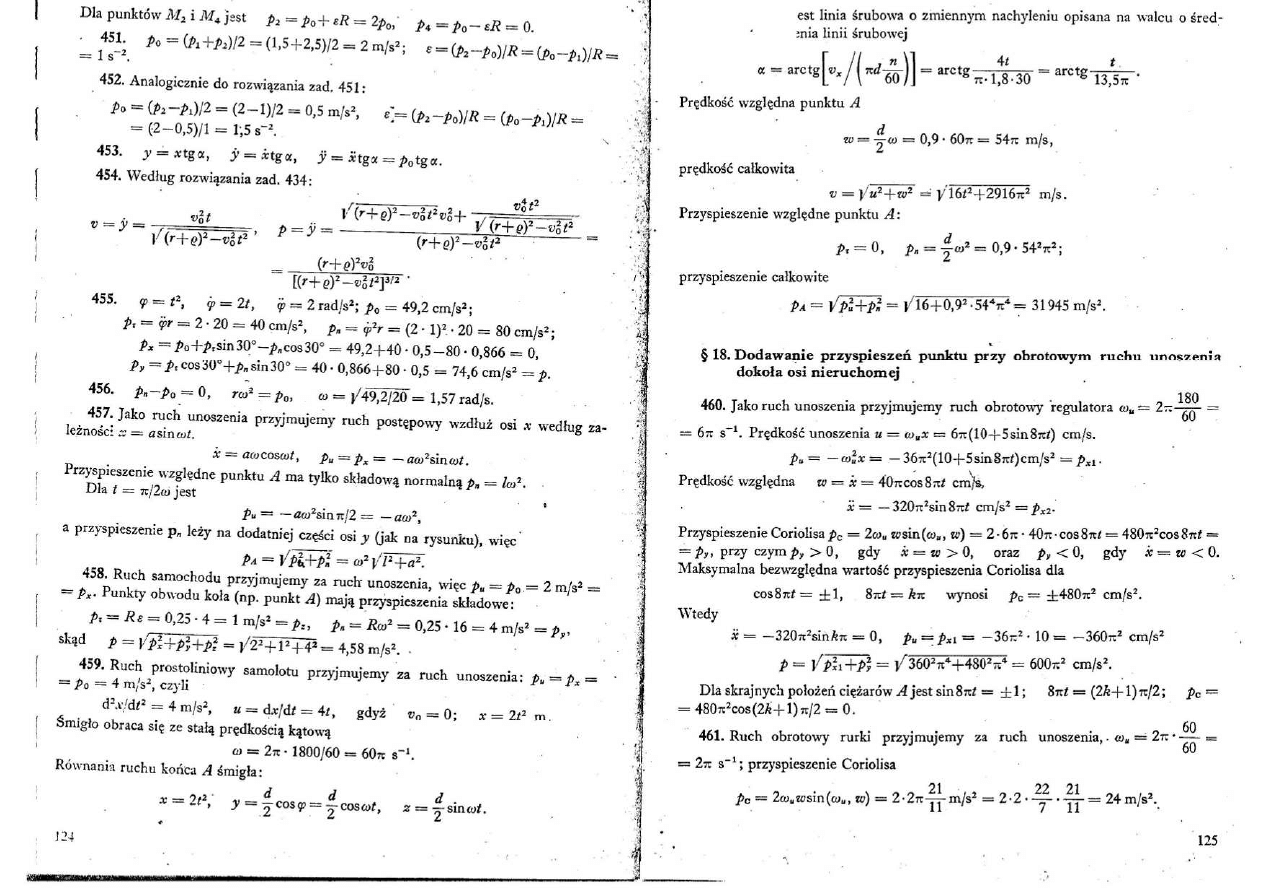 Dla punktów M₂ i M₄ jest p₂ = p₀ + εR = 2p₀, p₄ = p₀ − εR = 0.
451. p₀ = (p₁+p₂)/2 = (1,5+2,5)/2 = 2 m/s²; ε = (p₂−p₀)/R = (p₀−p₁)/R =
= 1 s⁻².
452. Analogicznie do rozwiązania zad. 451:
p₀ = (p₂−p₁)/2 = (2−1)/2 = 0,5 m/s², ε = (p₂−p₀)/R = (p₀−p₁)/R =
= (2−0,5)/1 = 1,5 s⁻².
453. y = xtgα, ẏ = ẋtgα, ÿ = ẍtgα = p₀tgα.
454. Według rozwiązania zad. 434:
v = ẏ = v₀²t / √((r+ϱ)²−v₀²t²), p = ÿ = (√((r+ϱ)²−v₀²t²) v₀² + v₀⁴t² / √((r+ϱ)²−v₀²t²)) / ((r+ϱ)²−v₀²t²) =
= (r+ϱ)²v₀² / [(r+ϱ)²−v₀²t²]³ᐟ².
455. φ = t², φ̇ = 2t, φ̈ = 2 rad/s²; p₀ = 49,2 cm/s²;
pₜ = φ̈r = 2 · 20 = 40 cm/s², pₙ = φ̇²r = (2 · 1)² · 20 = 80 cm/s²;
pₓ = p₀+pₜsin30°−pₙcos30° = 49,2+40 · 0,5−80 · 0,866 = 0,
p_y = pₜcos30°+pₙsin30° = 40 · 0,866+80 · 0,5 = 74,6 cm/s² = p.
456. pₙ−p₀ = 0, rω² = p₀, ω = √49,2/20 = 1,57 rad/s.
457. Jako ruch unoszenia przyjmujemy ruch postępowy wzdłuż osi x według za-
leżności x = asinωt.
ẋ = aωcosωt, pᵤ = pₓ = −aω²sinωt.
Przyspieszenie względne punktu A ma tylko składową normalną pₙ = lω².
Dla t = π/2ω jest
pᵤ = −aω²sinπ/2 = −aω²,
a przyspieszenie pₙ leży na dodatniej części osi y (jak na rysunku), więc
p_A = √(pᵤ²+pₙ²) = ω²√(l²+a²).
458. Ruch samochodu przyjmujemy za ruch unoszenia, więc pᵤ = p₀ = 2 m/s² =
= pₓ. Punkty obwodu koła (np. punkt A) mają przyspieszenia składowe:
pₜ = Rε = 0,25 · 4 = 1 m/s² = p_z, pₙ = Rω² = 0,25 · 16 = 4 m/s² = p_y,
skąd p = √(pₓ²+p_y²+p_z²) = √(2²+1²+4²) = 4,58 m/s².
459. Ruch prostoliniowy samolotu przyjmujemy za ruch unoszenia: pᵤ = pₓ =
= p₀ = 4 m/s², czyli
d²x/dt² = 4 m/s², u = dx/dt = 4t, gdyż v₀ = 0; x = 2t² m.
Śmigło obraca się ze stałą prędkością kątową
ω = 2π · 1800/60 = 60π s⁻¹.
Równania ruchu końca A śmigła:
x = 2t², y = d/2 cosφ = d/2 cosωt, z = d/2 sinωt.
124
est linia śrubowa o zmiennym nachyleniu opisana na walcu o śred-
enia linii śrubowej
α = arctg[vₓ/(πd n/60)] = arctg 4t/(π·1,8·30) = arctg t/(13,5π).
Prędkość względna punktu A
w = d/2 ω = 0,9 · 60π = 54π m/s,
prędkość całkowita
v = √(u²+w²) = √(16t²+2916π²) m/s.
Przyspieszenie względne punktu A:
pₜ = 0, pₙ = d/2 ω² = 0,9 · 54²π²;
przyspieszenie całkowite
p_A = √(pᵤ²+pₙ²) = √(16+0,9²·54⁴π⁴) = 31945 m/s².
§ 18. Dodawanie przyspieszeń punktu przy obrotowym ruchu unoszenia
dokoła osi nieruchomej
460. Jako ruch unoszenia przyjmujemy ruch obrotowy regulatora ωᵤ = 2π 180/60 =
= 6π s⁻¹. Prędkość unoszenia u = ωᵤx = 6π(10+5sin8πt) cm/s.
pᵤ = −ωᵤ²x = −36π²(10+5sin8πt)cm/s² = pₓ₁.
Prędkość względna w = ẋ = 40πcos8πt cm/s,
ẍ = −320π²sin8πt cm/s² = pₓ₂.
Przyspieszenie Coriolisa p_C = 2ωᵤwsin(ωᵤ, w) = 2·6π · 40π·cos8πt = 480π²cos8πt =
= p_y, przy czym p_y > 0, gdy ẋ = w > 0, oraz p_y < 0, gdy ẋ = w < 0.
Maksymalna bezwzględna wartość przyspieszenia Coriolisa dla
cos8πt = ±1, 8πt = kπ wynosi p_C = ±480π² cm/s².
Wtedy
ẍ = −320π²sinkπ = 0, pᵤ = pₓ₁ = −36π² · 10 = −360π² cm/s²
p = √(pₓ₁²+p_y²) = √(360²π⁴+480²π⁴) = 600π² cm/s².
Dla skrajnych położeń ciężarów A jest sin8πt = ±1; 8πt = (2k+1)π/2; p_C =
= 480π²cos(2k+1)π/2 = 0.
461. Ruch obrotowy rurki przyjmujemy za ruch unoszenia, ωᵤ = 2π · 60/60 =
= 2π s⁻¹; przyspieszenie Coriolisa
p_C = 2ωᵤwsin(ωᵤ, w) = 2·2π 21/11 m/s² = 2·2 · 22/7 · 21/11 = 24 m/s².
125